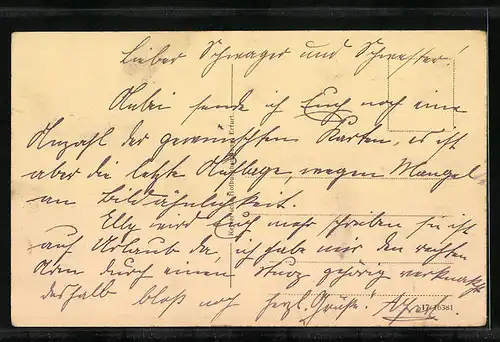 Lieber Schwager und Schwester!
Anbei sende ich Euch noch eine
Anzahl der gewünschten Karten, es ist
aber die letzte Auflage wegen Mangel
an Bildähnlichkeit.
Elly wird Euch mehr schreiben sie ist
auf Urlaub da, ich habe mir den rechten
Arm durch einen Sturz gehörig verknackst
deshalb bloß noch herzl. Grüße!
17 16381